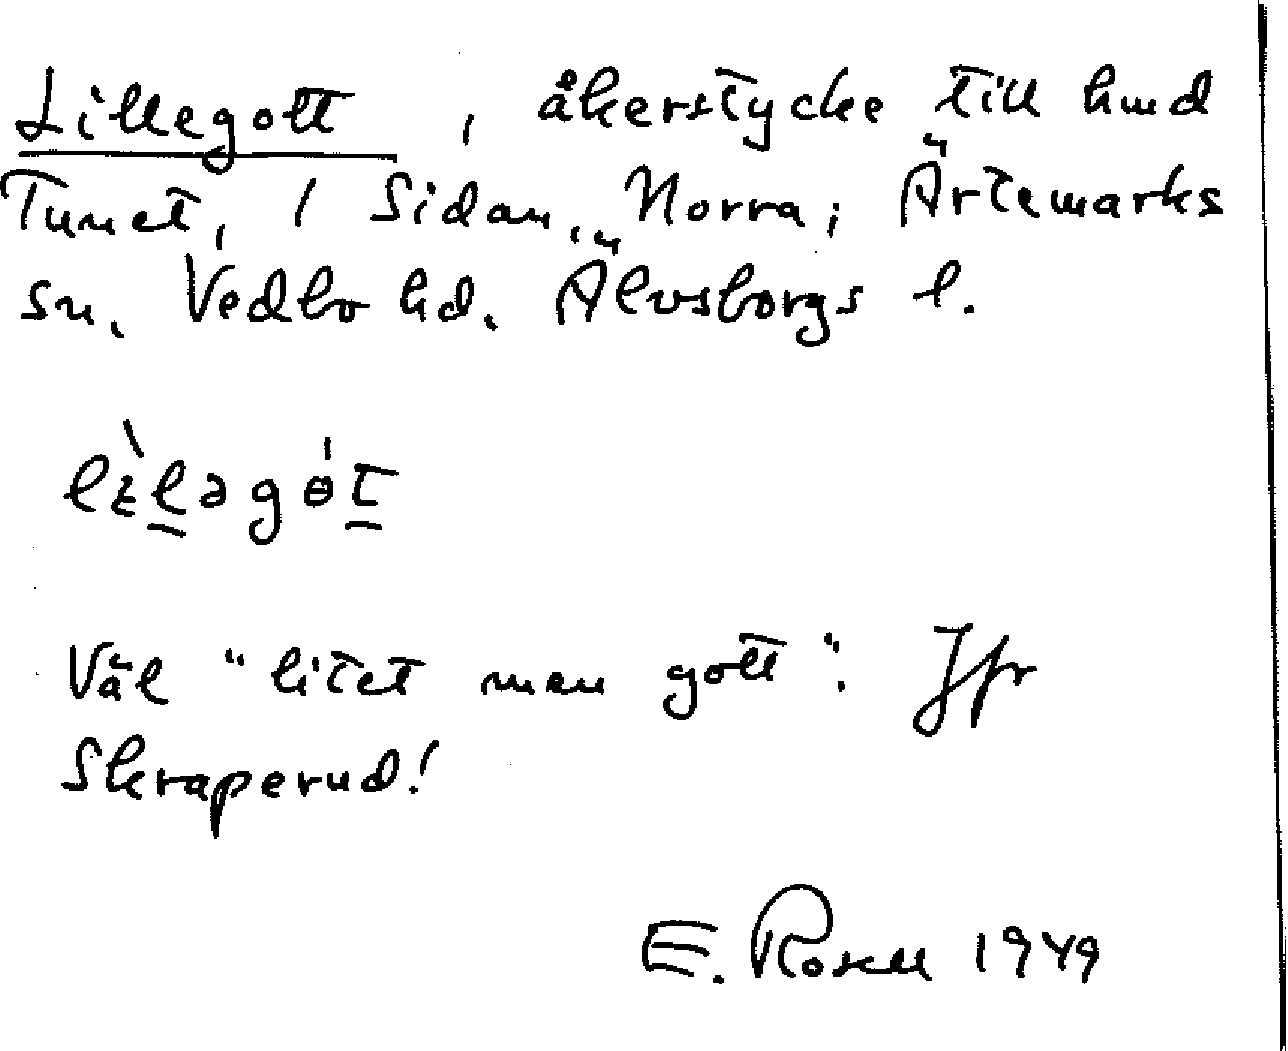 Lillegott, åkerstycke till hmd
Tunet, 1 Sidan, Norra; Ärtemarks
sn. Vedbo hd. Älvsborgs l.
Väl "litet men gott". Jfr
Skraperud!
E. Rosell 1949